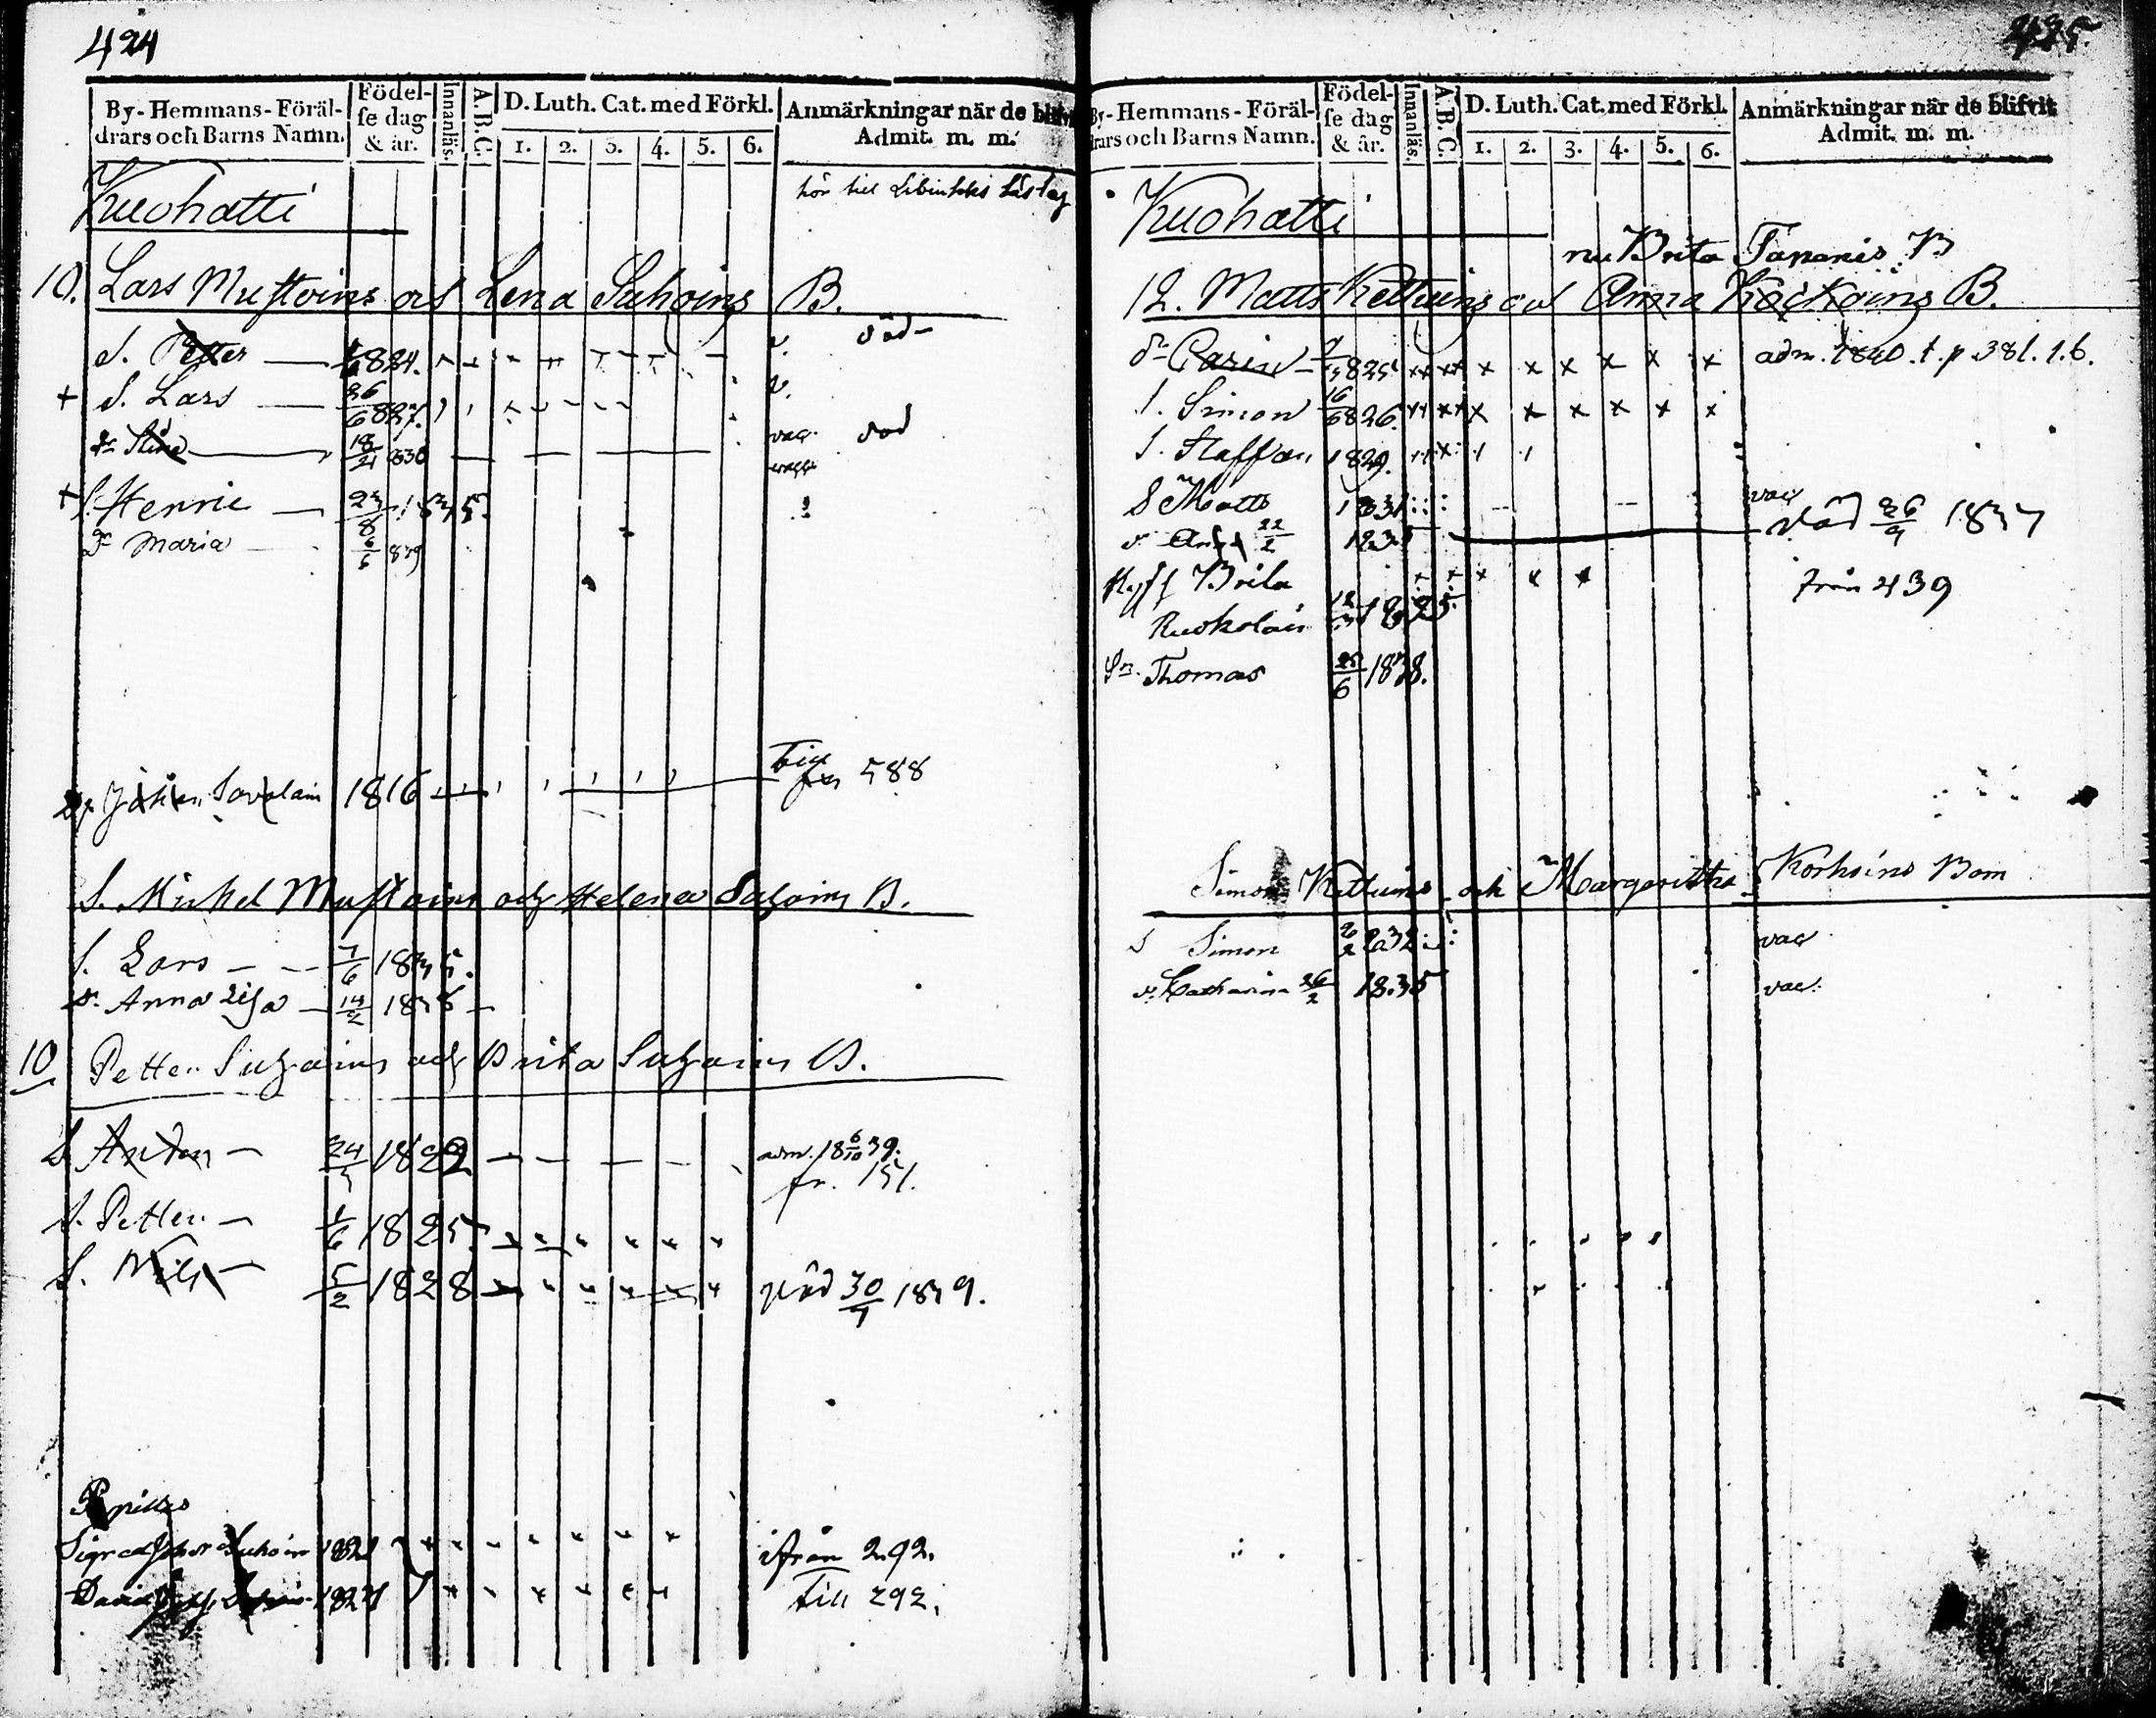 424
By-Hemmans-Föräl-
drars och Barns Namn.
Födel-
se dag
& år.
Innanläs.
A. B. C.
D. Luth. Cat. med Förkl.
1. 2. 3. 4. 5. 6.
Anmärkningar när de blifvit
Admit. m. m.
Kuohatti
hör till
10. Lars Mustoins och Lena Suhoins B.
S. Petter 824. död
+ S. Lars 26/6 827.
dr Stina 18/21 830 vac. död
+ S. Henric 23/8 1835.
Dr Maria 6/6 839
Johan 1816 588
S. Mickel Mustoins och Helena Suhoins B.
S. Lars 7/6 1835.
d. Anna Lisa 14/2 1838
10 Petter Suhoins och Brita Suhoins B.
S. Anton 24/5 1822 adm. 18 6/10 39.
fr. 151.
S. Petter 1/6 1825
S. Nils 5/2 1828 död 30/7 1839.
Sigrid 182 ifrån 292.
David 182 till 292.
425.
By-Hemmans-Föräl-
drars och Barns Namn.
Födel-
se dag
& år.
Innanläs.
A. B. C.
D. Luth. Cat. med Förkl.
1. 2. 3. 4. 5. 6.
Anmärkningar när de blifvit
Admit. m. m.
Kuohatti
nu Brita Tapanis B
12. Matts Kettuins och Anna Kockoins B.
dr Carin 825 adm. 1840. t. p. 381. 1. 6.
S. Simon 16/6 826.
S. Staffan 1829.
S Matts 1831 vac
d Anna 22/2 183 död 26/9 1837
Brita från 439
Ruokolain 1825
Sn. Thomas 25/6 1838.
Simon Kettuins och Margaretha Korhoins Bom
S Simon 832 vac
d. Catharina 26/2 1835 vac.